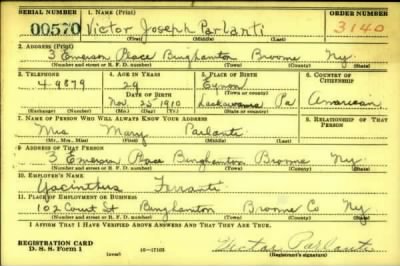 SERIAL NUMBER 1. NAME (Print) ORDER NUMBER
00570 Victor Joseph Parlanti 3140
(First) (Middle) (Last)
2. ADDRESS (Print)
3 Emerson Place Binghamton Broome Ny.
(Number and street or R. F. D. number) (Town) (County) (State)
3. TELEPHONE 4. AGE IN YEARS 5. PLACE OF BIRTH 6. COUNTRY OF CITIZENSHIP
4-9879 29 Eynon
DATE OF BIRTH (Town or county)
Nov 25 1910 Lackawanna Pa American
(Exchange) (Number) (Mo.) (Day) (Yr.) (State or country)
7. NAME OF PERSON WHO WILL ALWAYS KNOW YOUR ADDRESS 8. RELATIONSHIP OF THAT PERSON
Mrs Mary Parlanti
(Mr., Mrs., Miss) (First) (Middle) (Last)
9. ADDRESS OF THAT PERSON
3 Emerson Place Binghamton Broome Ny.
(Number and street or R. F. D. number) (Town) (County) (State)
10. EMPLOYER'S NAME
Yacinthus Ferranti
11. PLACE OF EMPLOYMENT OR BUSINESS
102 Court St Binghamton Broome Co Ny
(Number and street or R. F. D. number) (Town) (County) (State)
I AFFIRM THAT I HAVE VERIFIED ABOVE ANSWERS AND THAT THEY ARE TRUE.
REGISTRATION CARD
D. S. S. Form 1 (over) 16—17105 Victor Parlanti
(Registrant's signature)